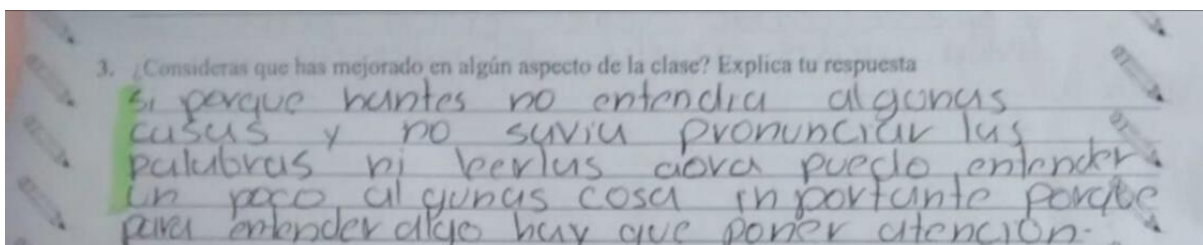 3. ¿Consideras que has mejorado en algún aspecto de la clase? Explica tu respuesta
Si porque hantes no entendia algonas
cusas y no savia pronunciar las
palabras ni leerlas aora puedo entender
un poco algunas cosa inportante porqbe
para entender algo hay que poner atención.